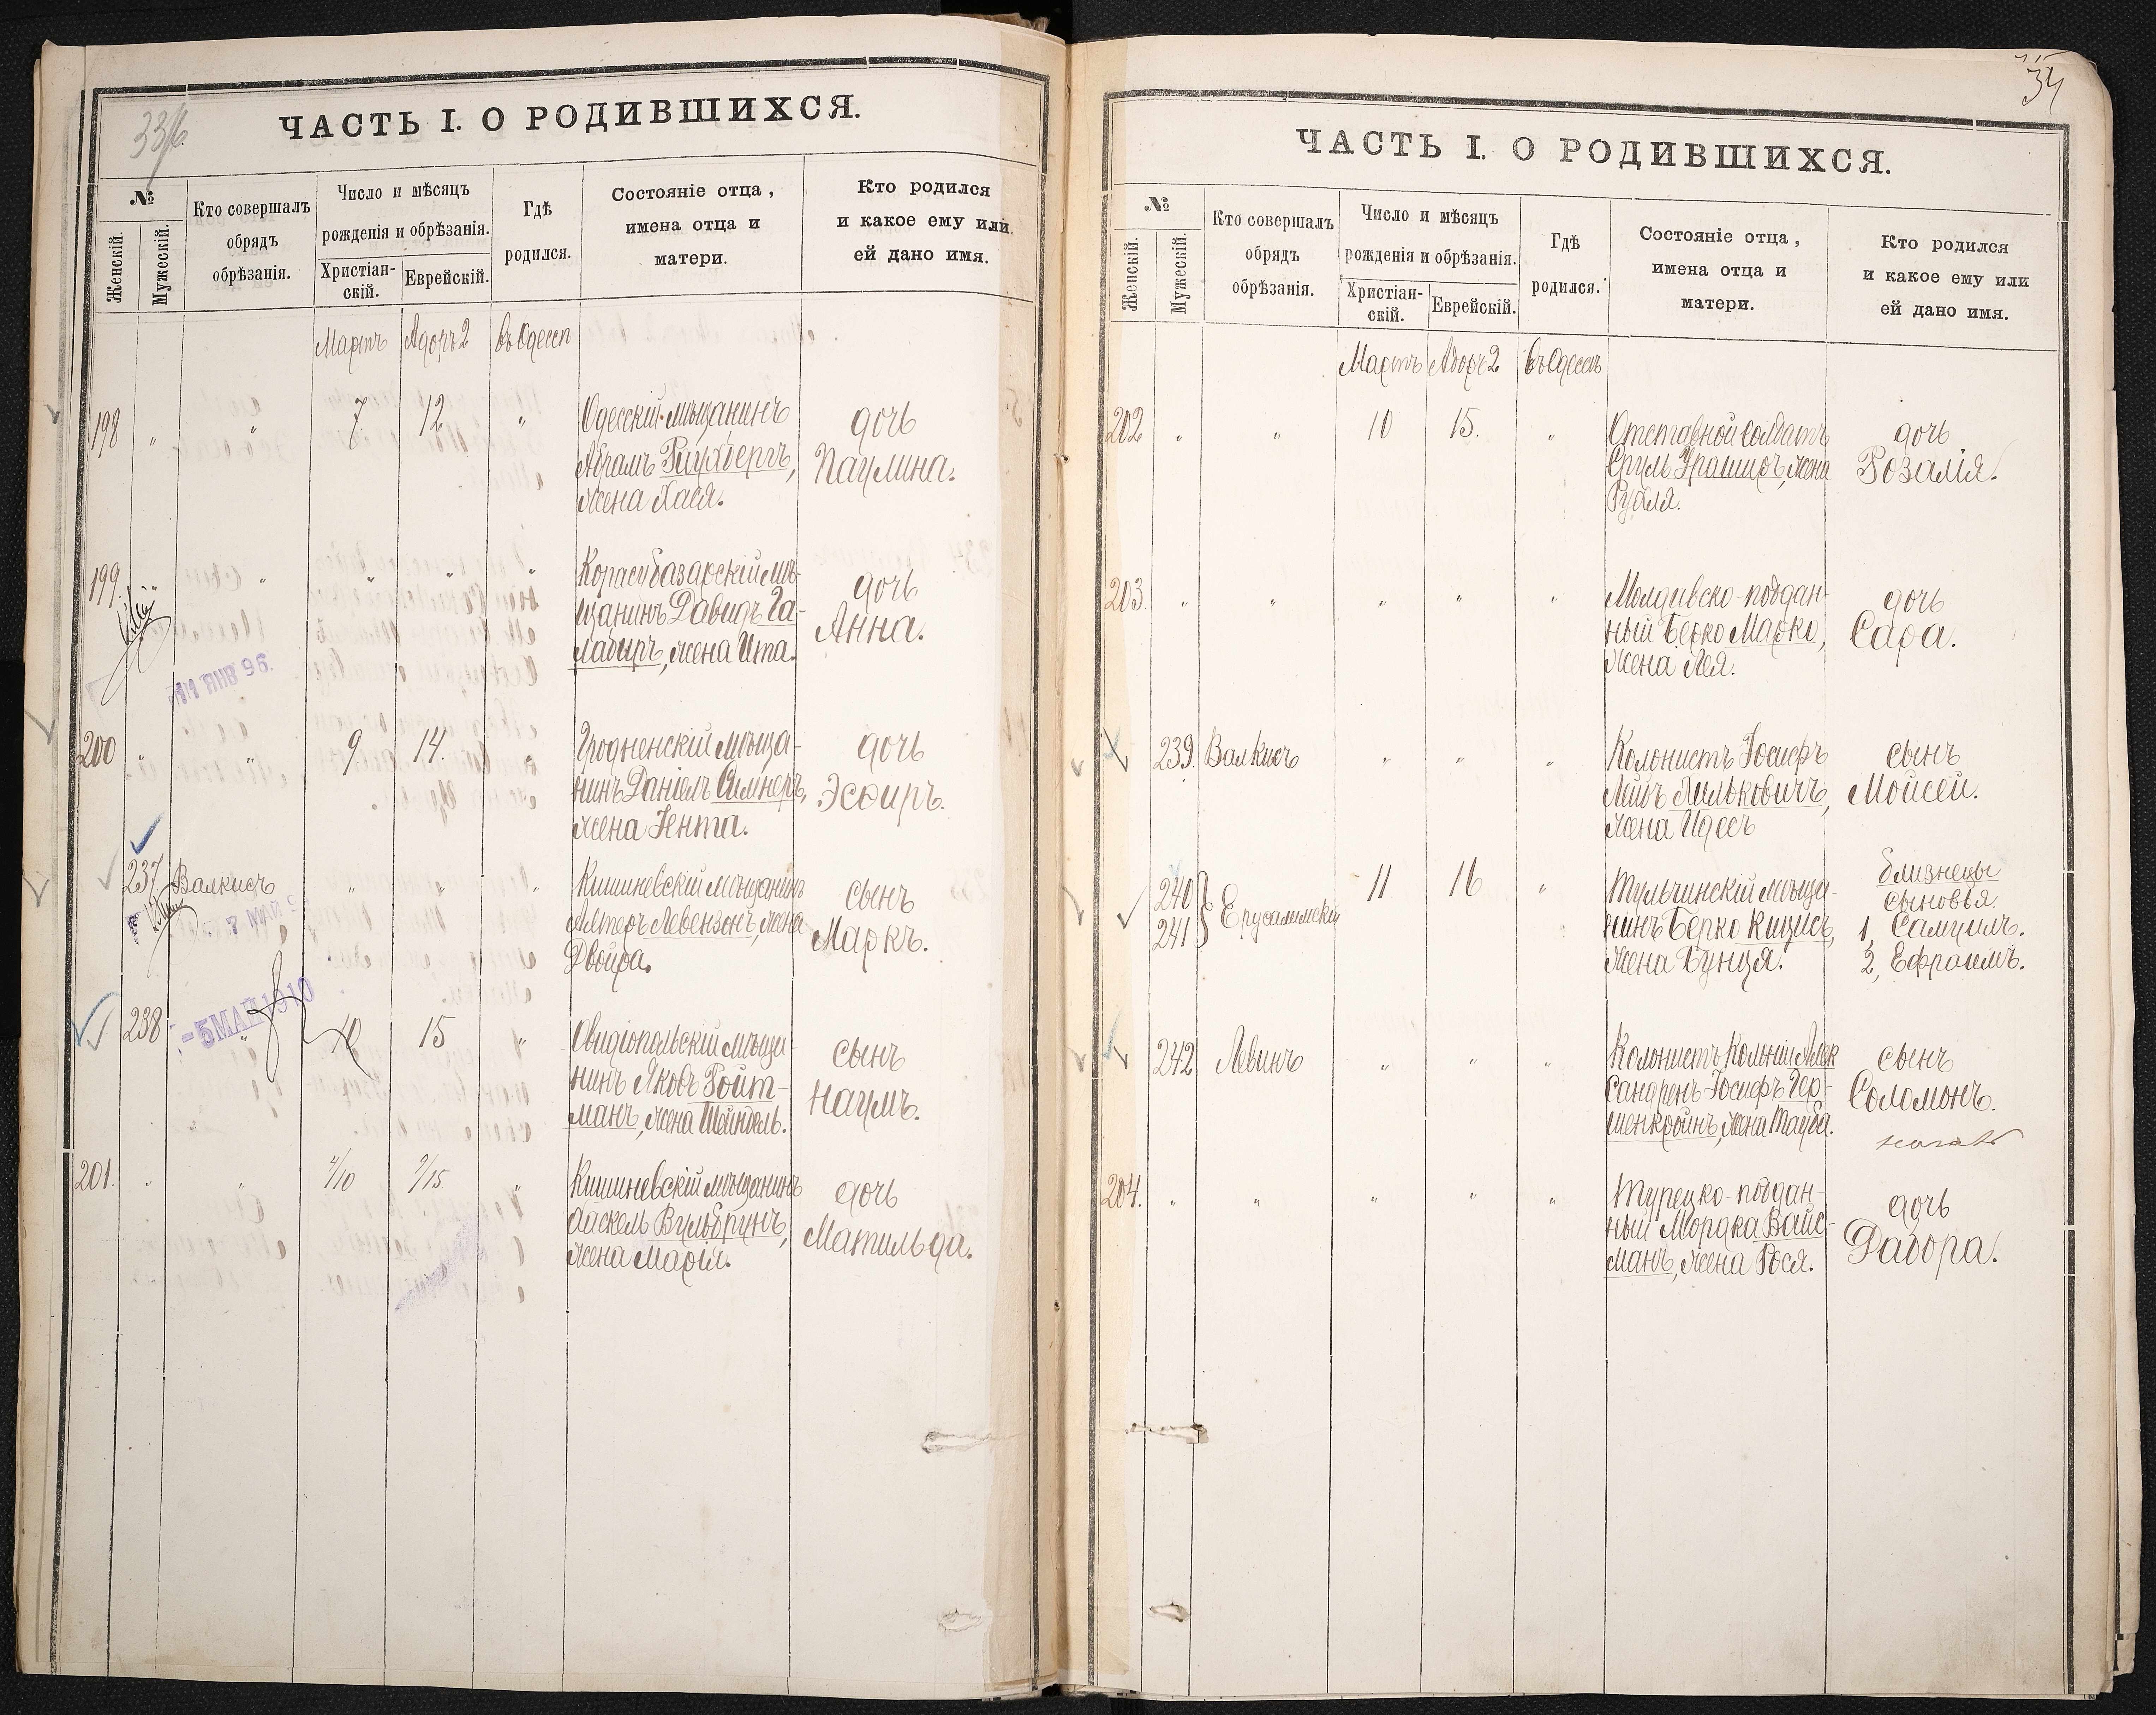 33/6.
ЧАСТЬ I. О РОДИВШИХСЯ.
№
Женскій.
Мужескій.
Кто совершалъ
обрядъ
обрѣзанія.
Число и мѣсяцъ
рожденія и обрѣзанія.
Христіан-
скій.
Еврейскій.
Гдѣ
родился.
Состояніе отца,
имена отца и
матери.
Кто родился
и какое ему или
ей дано имя.
Мартъ Адаръ 2 въ Одессѣ
198 " " 7 12 "
Одесскій мѣщанинъ
Абрамъ Раухбергъ,
жена Хася.
дочь
Паулина.
199. " " " " "
Корасубазарскій мѣ-
щанинъ Давидъ Га-
жена Ита.
дочь
Анна.
ЯНВ 96.
200 " " 9 14. "
Гродненскій мѣща-
нинъ Даніелъ
жена Іента.
дочь
Эсфирь.
237 Валкисъ " " "
Кишиневскій мѣщанинъ
Алтеръ Левензонъ, жена
Двойра.
сынъ
Маркъ.
7 МАЙ
238 " 10 15 "
-5 МАЙ 1910
Овидіопольскій мѣща-
нинъ Яковъ Ройт-
манъ, жена Шейндель.
сынъ
Наумъ.
201. " " 4/10 9/15 "
Кишиневскій мѣщанинъ
Хаскель Вульбрунъ,
жена Марія.
дочь
Матильда.
34
ЧАСТЬ I. О РОДИВШИХСЯ.
№
Женскій.
Мужескій.
Кто совершалъ
обрядъ
обрѣзанія.
Число и мѣсяцъ
рожденія и обрѣзанія.
Христіан-
скій.
Еврейскій.
Гдѣ
родился.
Состояніе отца,
имена отца и
матери.
Кто родился
и какое ему или
ей дано имя.
Мартъ Адаръ 2 въ Одессѣ
202 " " 10 15. "
Отставной солдатъ
Сруль жена
Рухля.
дочь
Розалія.
203. " " " " "
Молдавско-поддан-
ный Берко Марко,
жена Лея.
дочь
Сара.
239. Валкисъ " " "
Колонистъ Іосифъ
Лейбъ Лильковичъ,
жена Идесъ
сынъ
Мойсей.
240
241 } Ерусалимскій 11 16 "
Тульчинскій мѣща-
нинъ Берко Кицисъ,
жена Бунця.
близнецы
сыновья.
1, Самуилъ.
2, Ефраимъ.
242 Левинъ " " "
Колонистъ Колоніи Алек
сандренъ Іосифъ Гер-
шенкройнъ, жена Тауба.
сынъ
Соломонъ.
204. " " " " "
Турецко-поддан-
ный Мордка Вайс-
манъ, жена Рося.
дочь
Дабора.